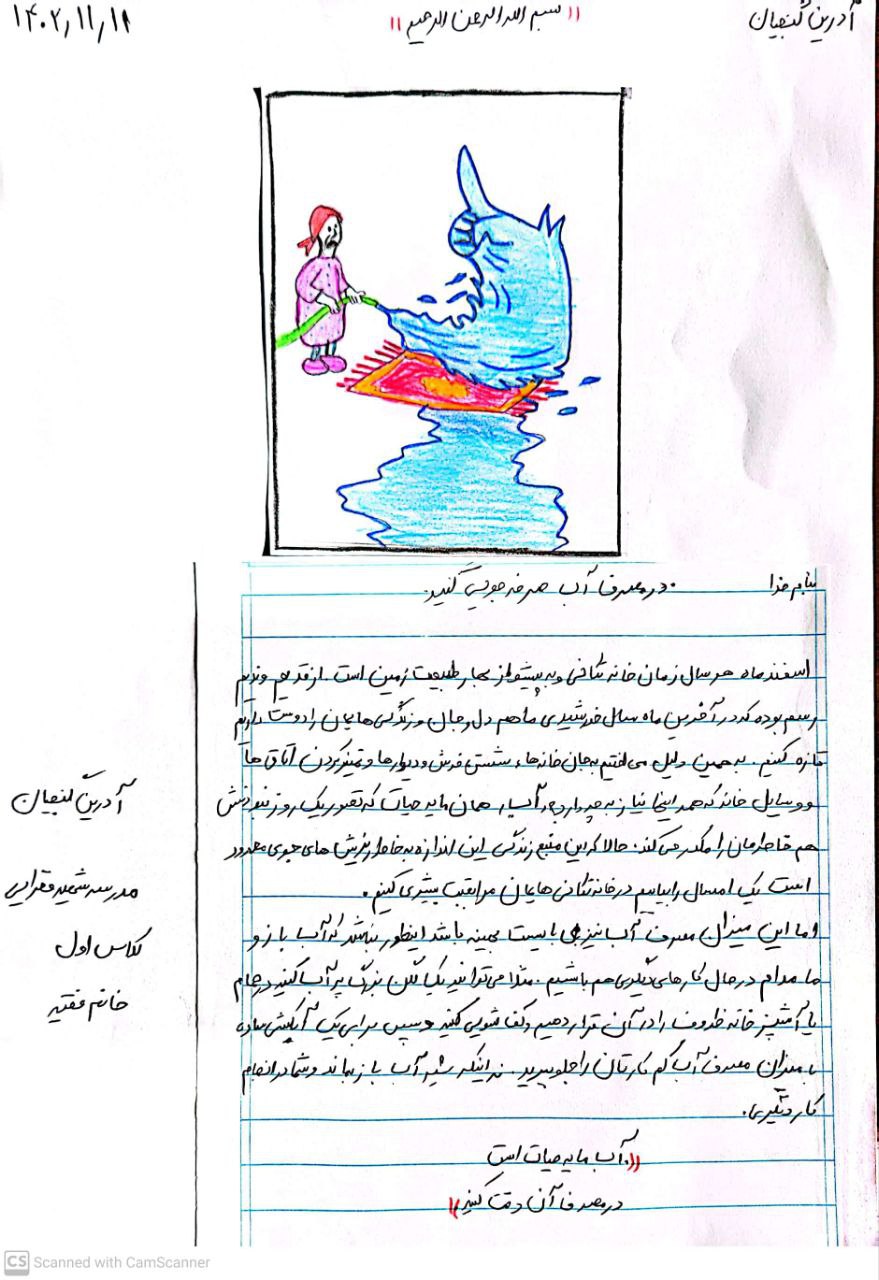 آدرین گنجیان
"بسم الله الرحمن الرحیم"
۱۴۰۲/۱۱/۱۸
بنام خدا
در مصرف آب صرفه جویی کنید.
اسفند ماه هر سال زمان خانه تکانی و به پیشواز بهار طبیعت زمین است. از قدیم و ندیم
رسم بوده که در آخرین ماه سال خورشیدی ما هم دل و جان و زندگی هایمان را دوست داریم
تازه کنیم. به همین دلیل می افتیم به جان خانه ها، شستن فرش و دیوارها و تمیز کردن اتاق ها
و وسایل خانه که همه اینها نیاز به دارد، آب، همان مایه حیات که تصور یک روز نبودنش
هم خاطرمان را مکدر می کند. حالا که این منبع زندگی این اندازه به خاطر ریزش های جوی محدود
است یک امسال را بیاییم در خانه تکانی هایمان مراقبت بیشتری کنیم.
اما این میزان مصرف آب نیز می بایست بهینه باشد اینطور نباشد که آب باز و
ما مدام در حال کارهای دیگری هم باشیم. مثلا می توانید یک لگن بزرگ پر آب کنید در حمام
یا آشپزخانه ظروف را در آن قرار دهیم و کف شویی کنید و سپس برای یک آبکشی ساده
با میزان مصرف آب کم کارتان را جلو ببرید. نه اینکه شیر آب باز بماند و شما در انجام
کار دیگری.
"آب مایه حیات است
در مصرف آن دقت کنید"
آدرین گنجیان
مدرسه شهید فقرایی
کلاس اول
خانم فقیه
CS Scanned with CamScanner